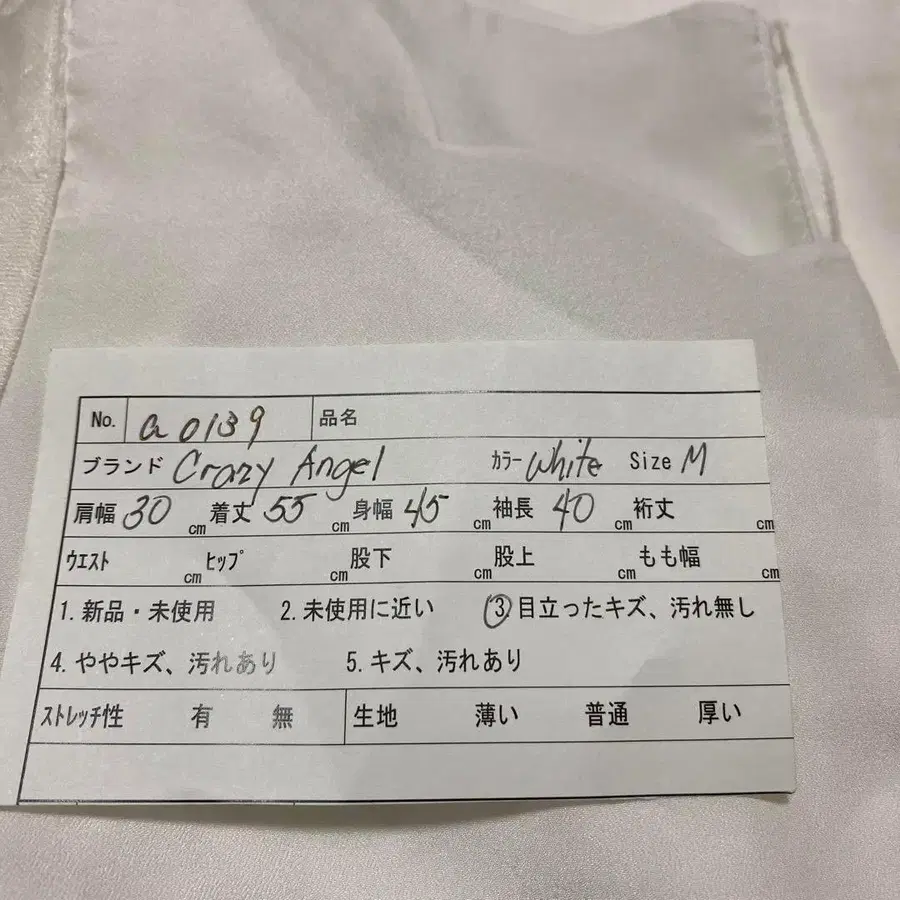 No. a 0139 品名
ブランド Crazy Angel カラー White Size M
肩幅 30 cm 着丈 55 cm 身幅 45 cm 袖長 40 cm 裄丈 cm
ウエスト cm ヒップ cm 股下 cm 股上 cm もも幅 cm
1. 新品・未使用 2. 未使用に近い ③ 目立ったキズ、汚れ無し
4. ややキズ、汚れあり 5. キズ、汚れあり
ストレッチ性 有 無 生地 薄い 普通 厚い